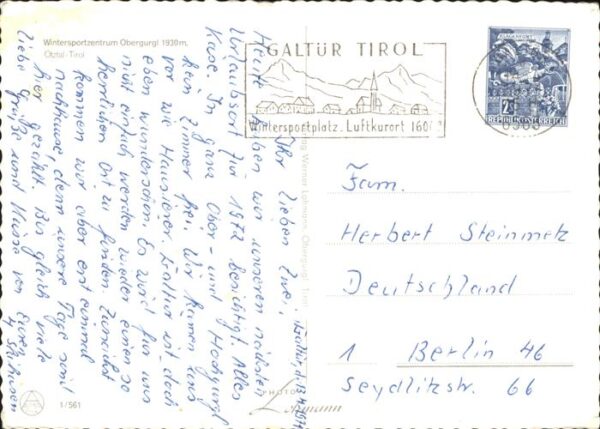 Wintersportzentrum Obergurgl 1930 m.
Ötztal - Tirol
GALTÜR TIROL
Wintersportplatz. Luftkurort 160
KLAGENFURT
2S
REPUBLIK ÖSTERREICH
Galtür, d. 13.4.1971
Ihr lieben Zwei,
Heute haben wir unseren nächsten
Urlaubsort für 1972 besichtigt. Alles
Käse. In ganz Ober- und Hochgurgl
kein Zimmer frei. Wir kamen uns
vor wie Hausierer. Galtür ist doch
eben wunderschön. Es wird für uns
nicht einfach werden wieder einen so
herrlichen Ort zu finden. Zunächst
kommen wir aber erst einmal
nachhause, denn unsere Tage sind
hier gezählt. Bis gleich viele
liebe Grüße und Küsse von Euch
Fam.
Herbert Steinmetz
Deutschland
1 Berlin 46
Seydlitzstr. 66
Verlag Werner Lohmann, Obergurgl, Tirol
PHOTO
Lohmann
1/561